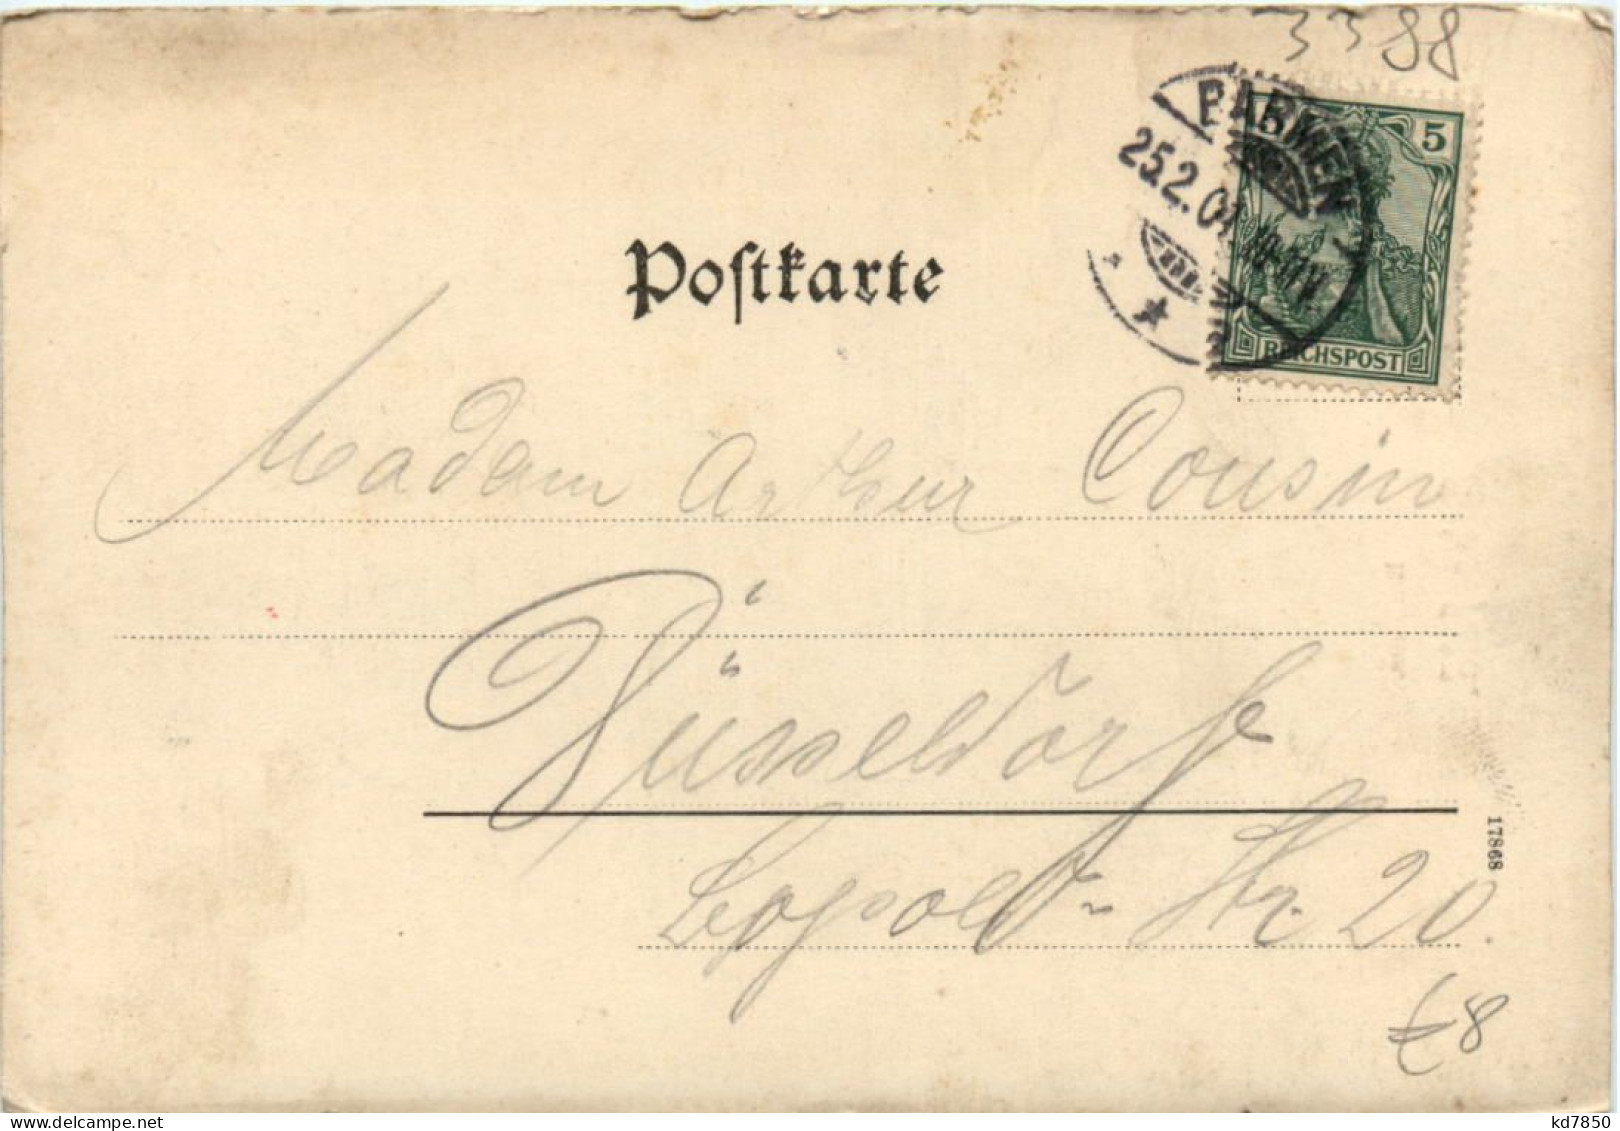 3388
BARMEN
25.2.01. 10-11V.
5
REICHSPOST
Poſtkarte
Madam Arthur Cousin
Düsseldorf
Leopold-Str. 20.
17868
€8
www.delcampe.net
kd7850